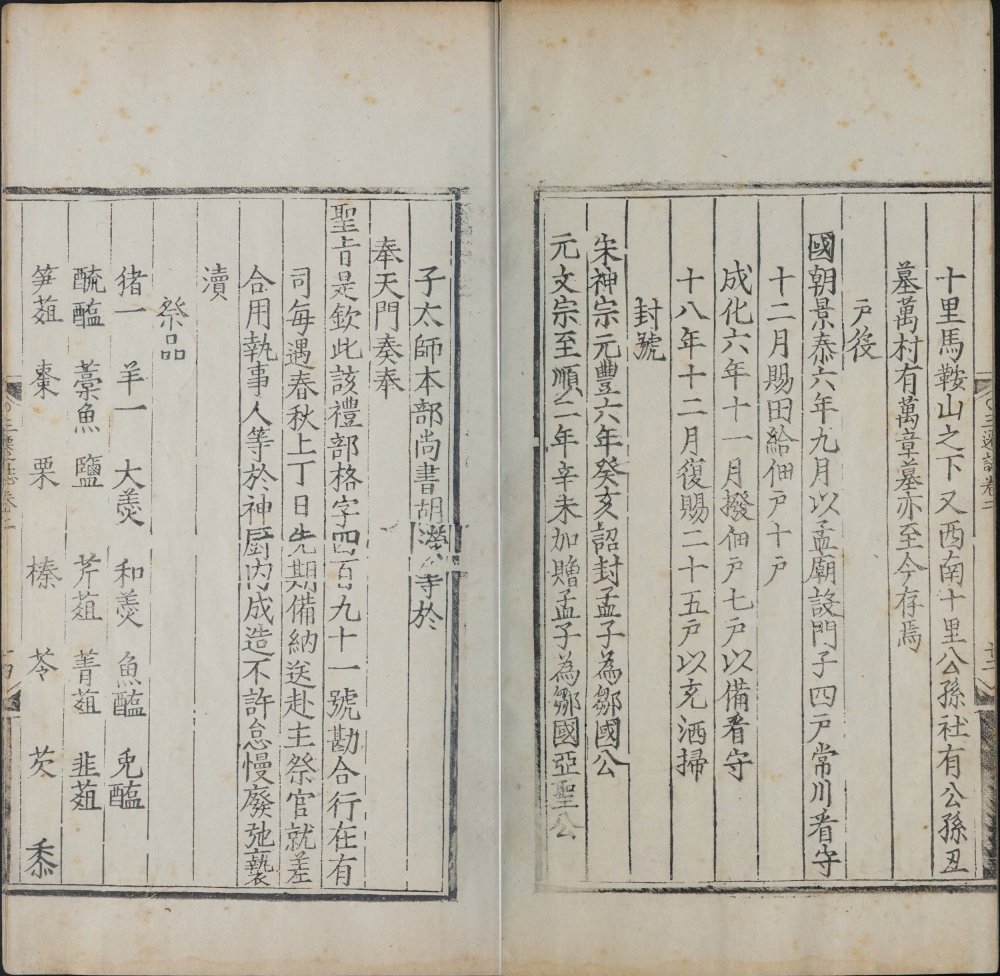 十里馬鞍山之下又西南十里公孫社有公孫丑
墓萬村有萬章墓亦至今存焉
戶役
國朝景泰六年九月以孟廟設門子四戶常川看守
十二月賜田給佃戶十戶
成化六年十一月撥佃戶七戶以備看守
十八年十二月復賜二十五戶以充洒掃
封號
宋神宗元豐六年癸亥詔封孟子為鄒國公
元文宗至順二年辛未加贈孟子為鄒國亞聖公
子太師本部尚書胡濙等於
奉天門奏奉
聖旨是欽此該禮部格字四百九十一號勘合行在有
司每遇春秋上丁日先期備納送赴主祭官就差
合用執事人等於神厨內成造不許怠慢廢弛褻
瀆
祭品
猪一 羊一 大羮 和羮 魚醢 兎醢
醓醢 藁魚 鹽 芹葅 菁葅 韭葅
笋葅 棗 栗 榛 苓 芡 黍
三遷誌卷二